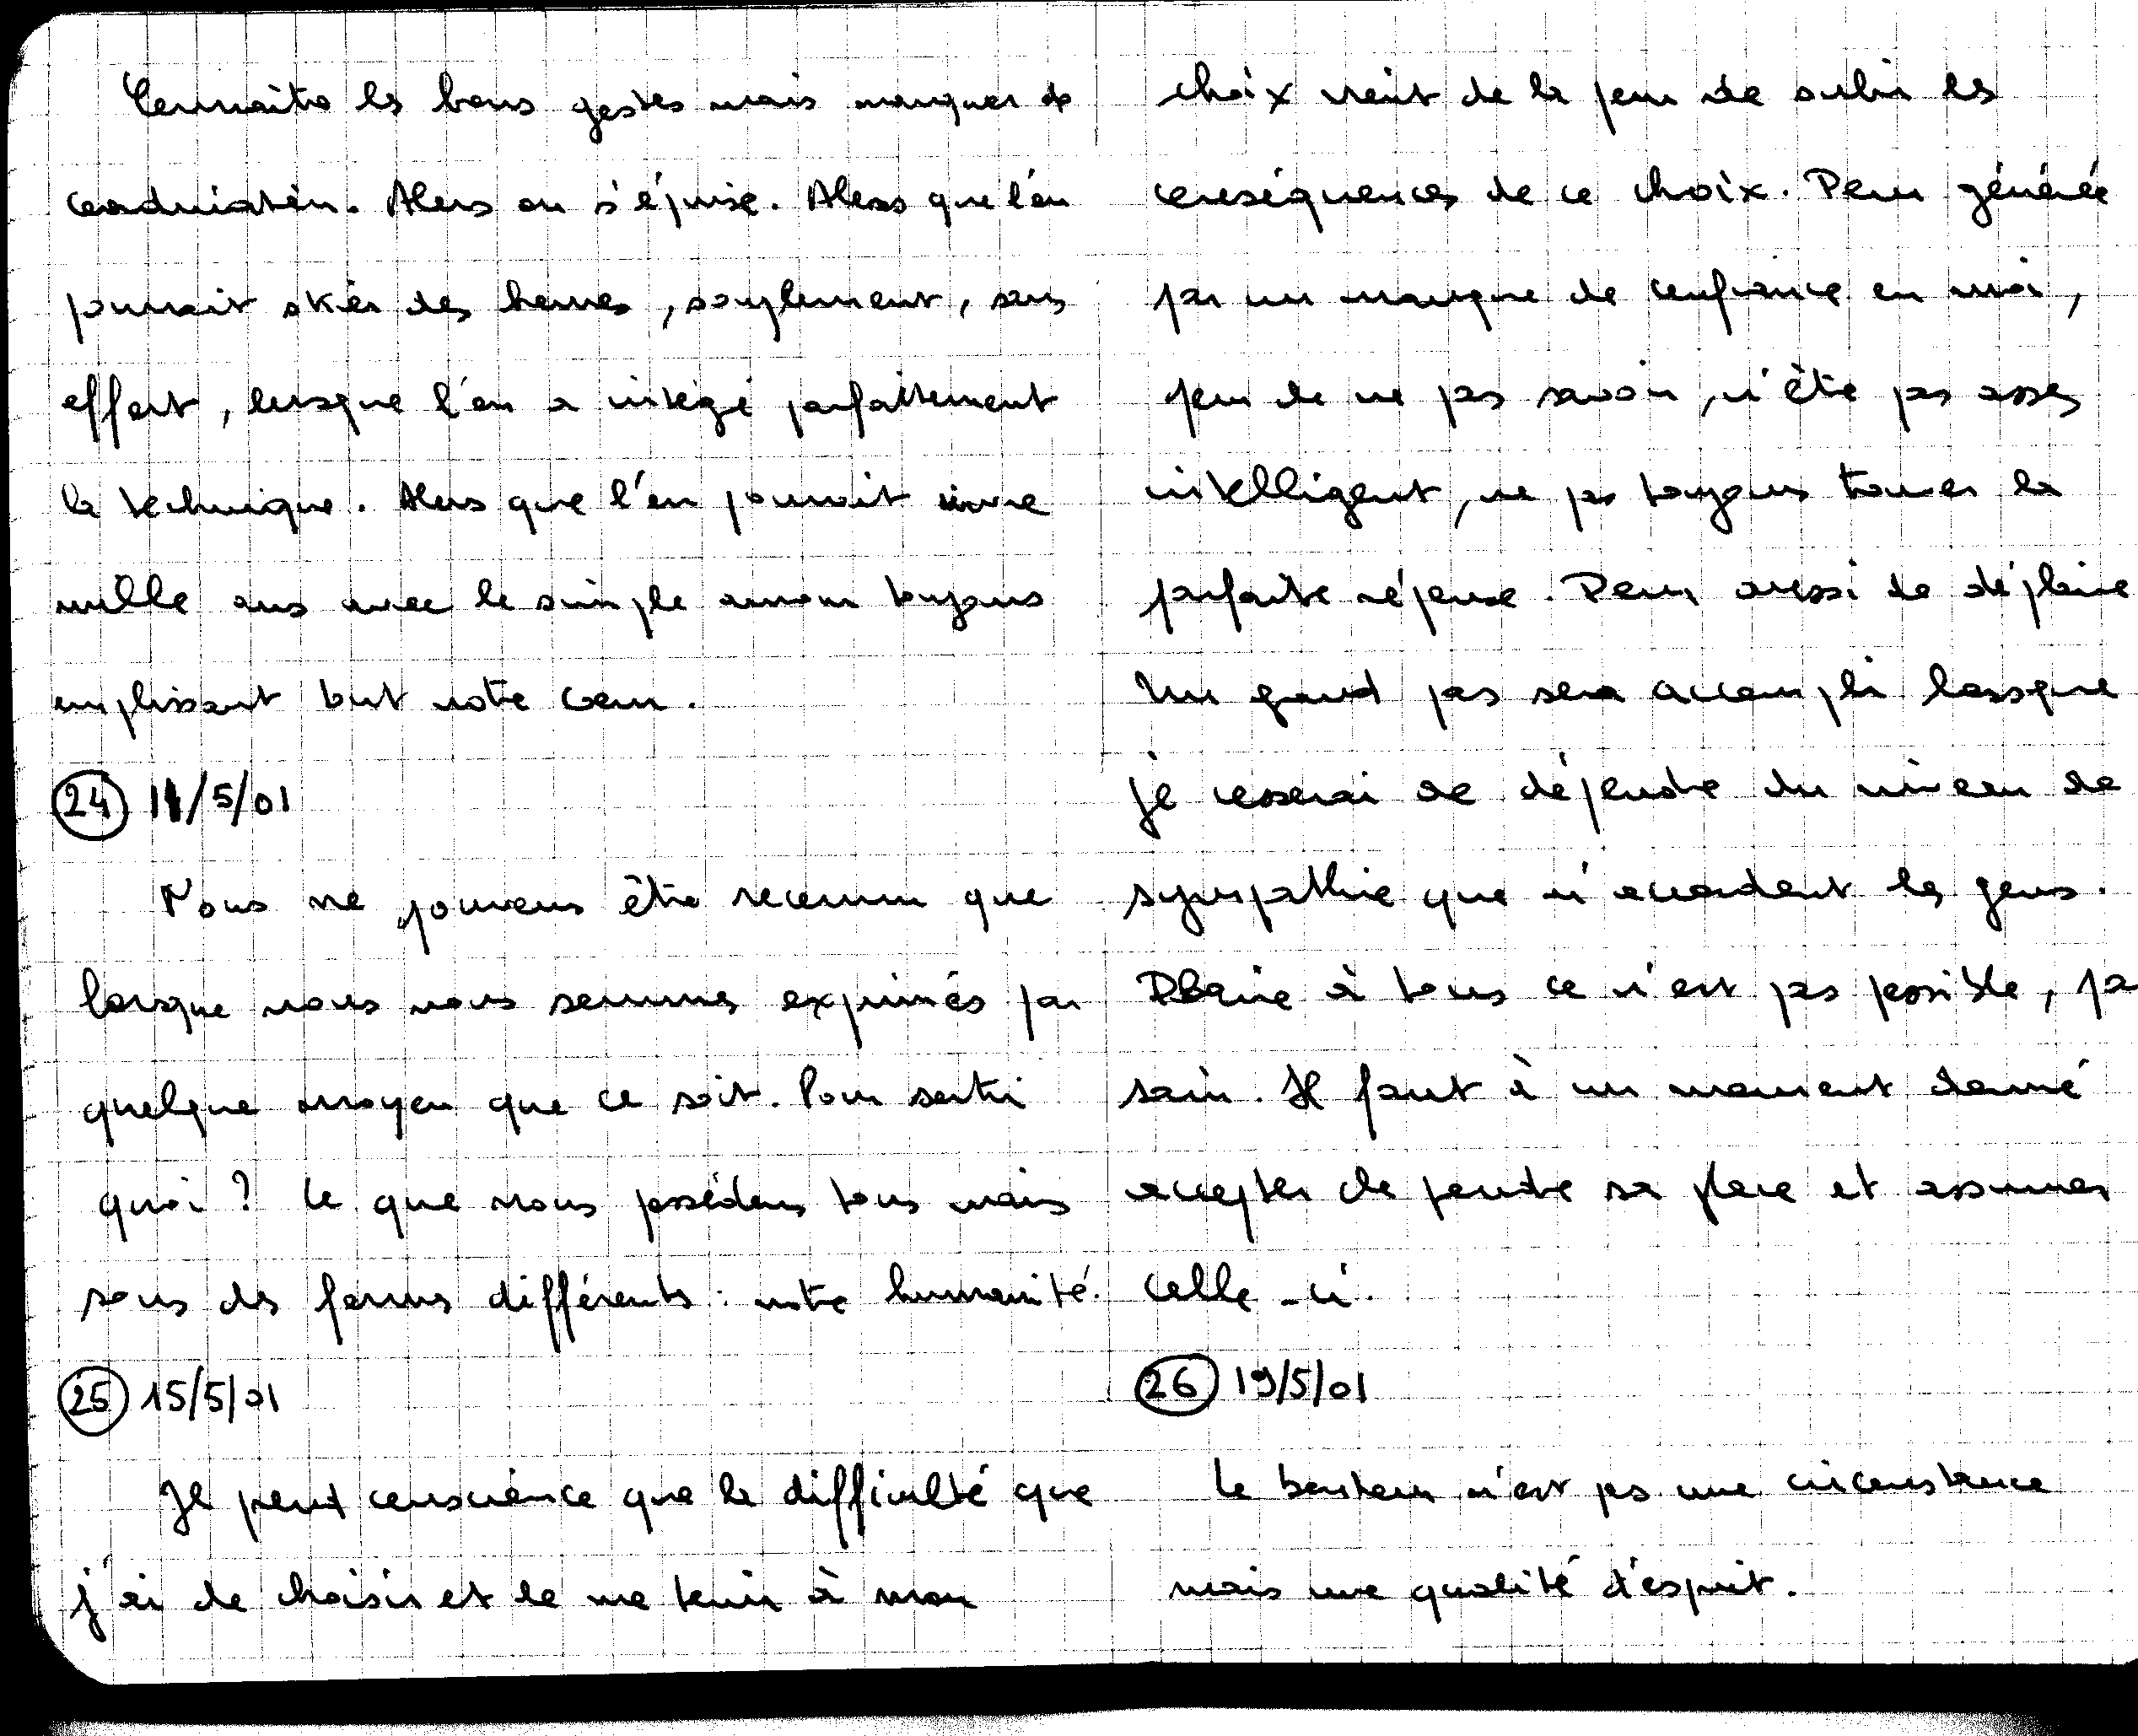 Connaître les bons gestes mais manquer de
coordination. Alors on s'épuise. Alors que l'on
pourrait skier des heures, souplement, sans
effort, lorsque l'on a intégré parfaitement
la technique. Alors que l'on pourrait vivre
mille ans avec le simple amour toujours
emplissant tout notre coeur.
24 11/5/01
Nous ne pouvons être reconnu que
lorsque nous nous sommes exprimés par
quelque moyen que ce soit. Pour sortir
quoi ? Ce que nous possédons tous mais
sous des formes différents : notre humanité.
25 15/5/01
Je prend conscience que la difficulté que
j'ai de choisir et de me tenir à mon
choix vient de la peur de subir les
conséquences de ce choix. Peur générée
par un manque de confiance en moi,
peur de ne pas savoir, n'être pas assez
intelligent, ne pas toujours trouver la
parfaite réponse. Peur aussi de déplaire
Un grand pas sera accompli lorsque
je cesserai de dépendre du niveau de
sympathie que m'accordent les gens.
Plaire à tous ce n'est pas possible, pa
sain. Il faut à un moment donné
accepter de prendre sa place et assumer
celle-ci.
26 19/5/01
Le bonheur n'est pas une circonstance
mais une qualité d'esprit.